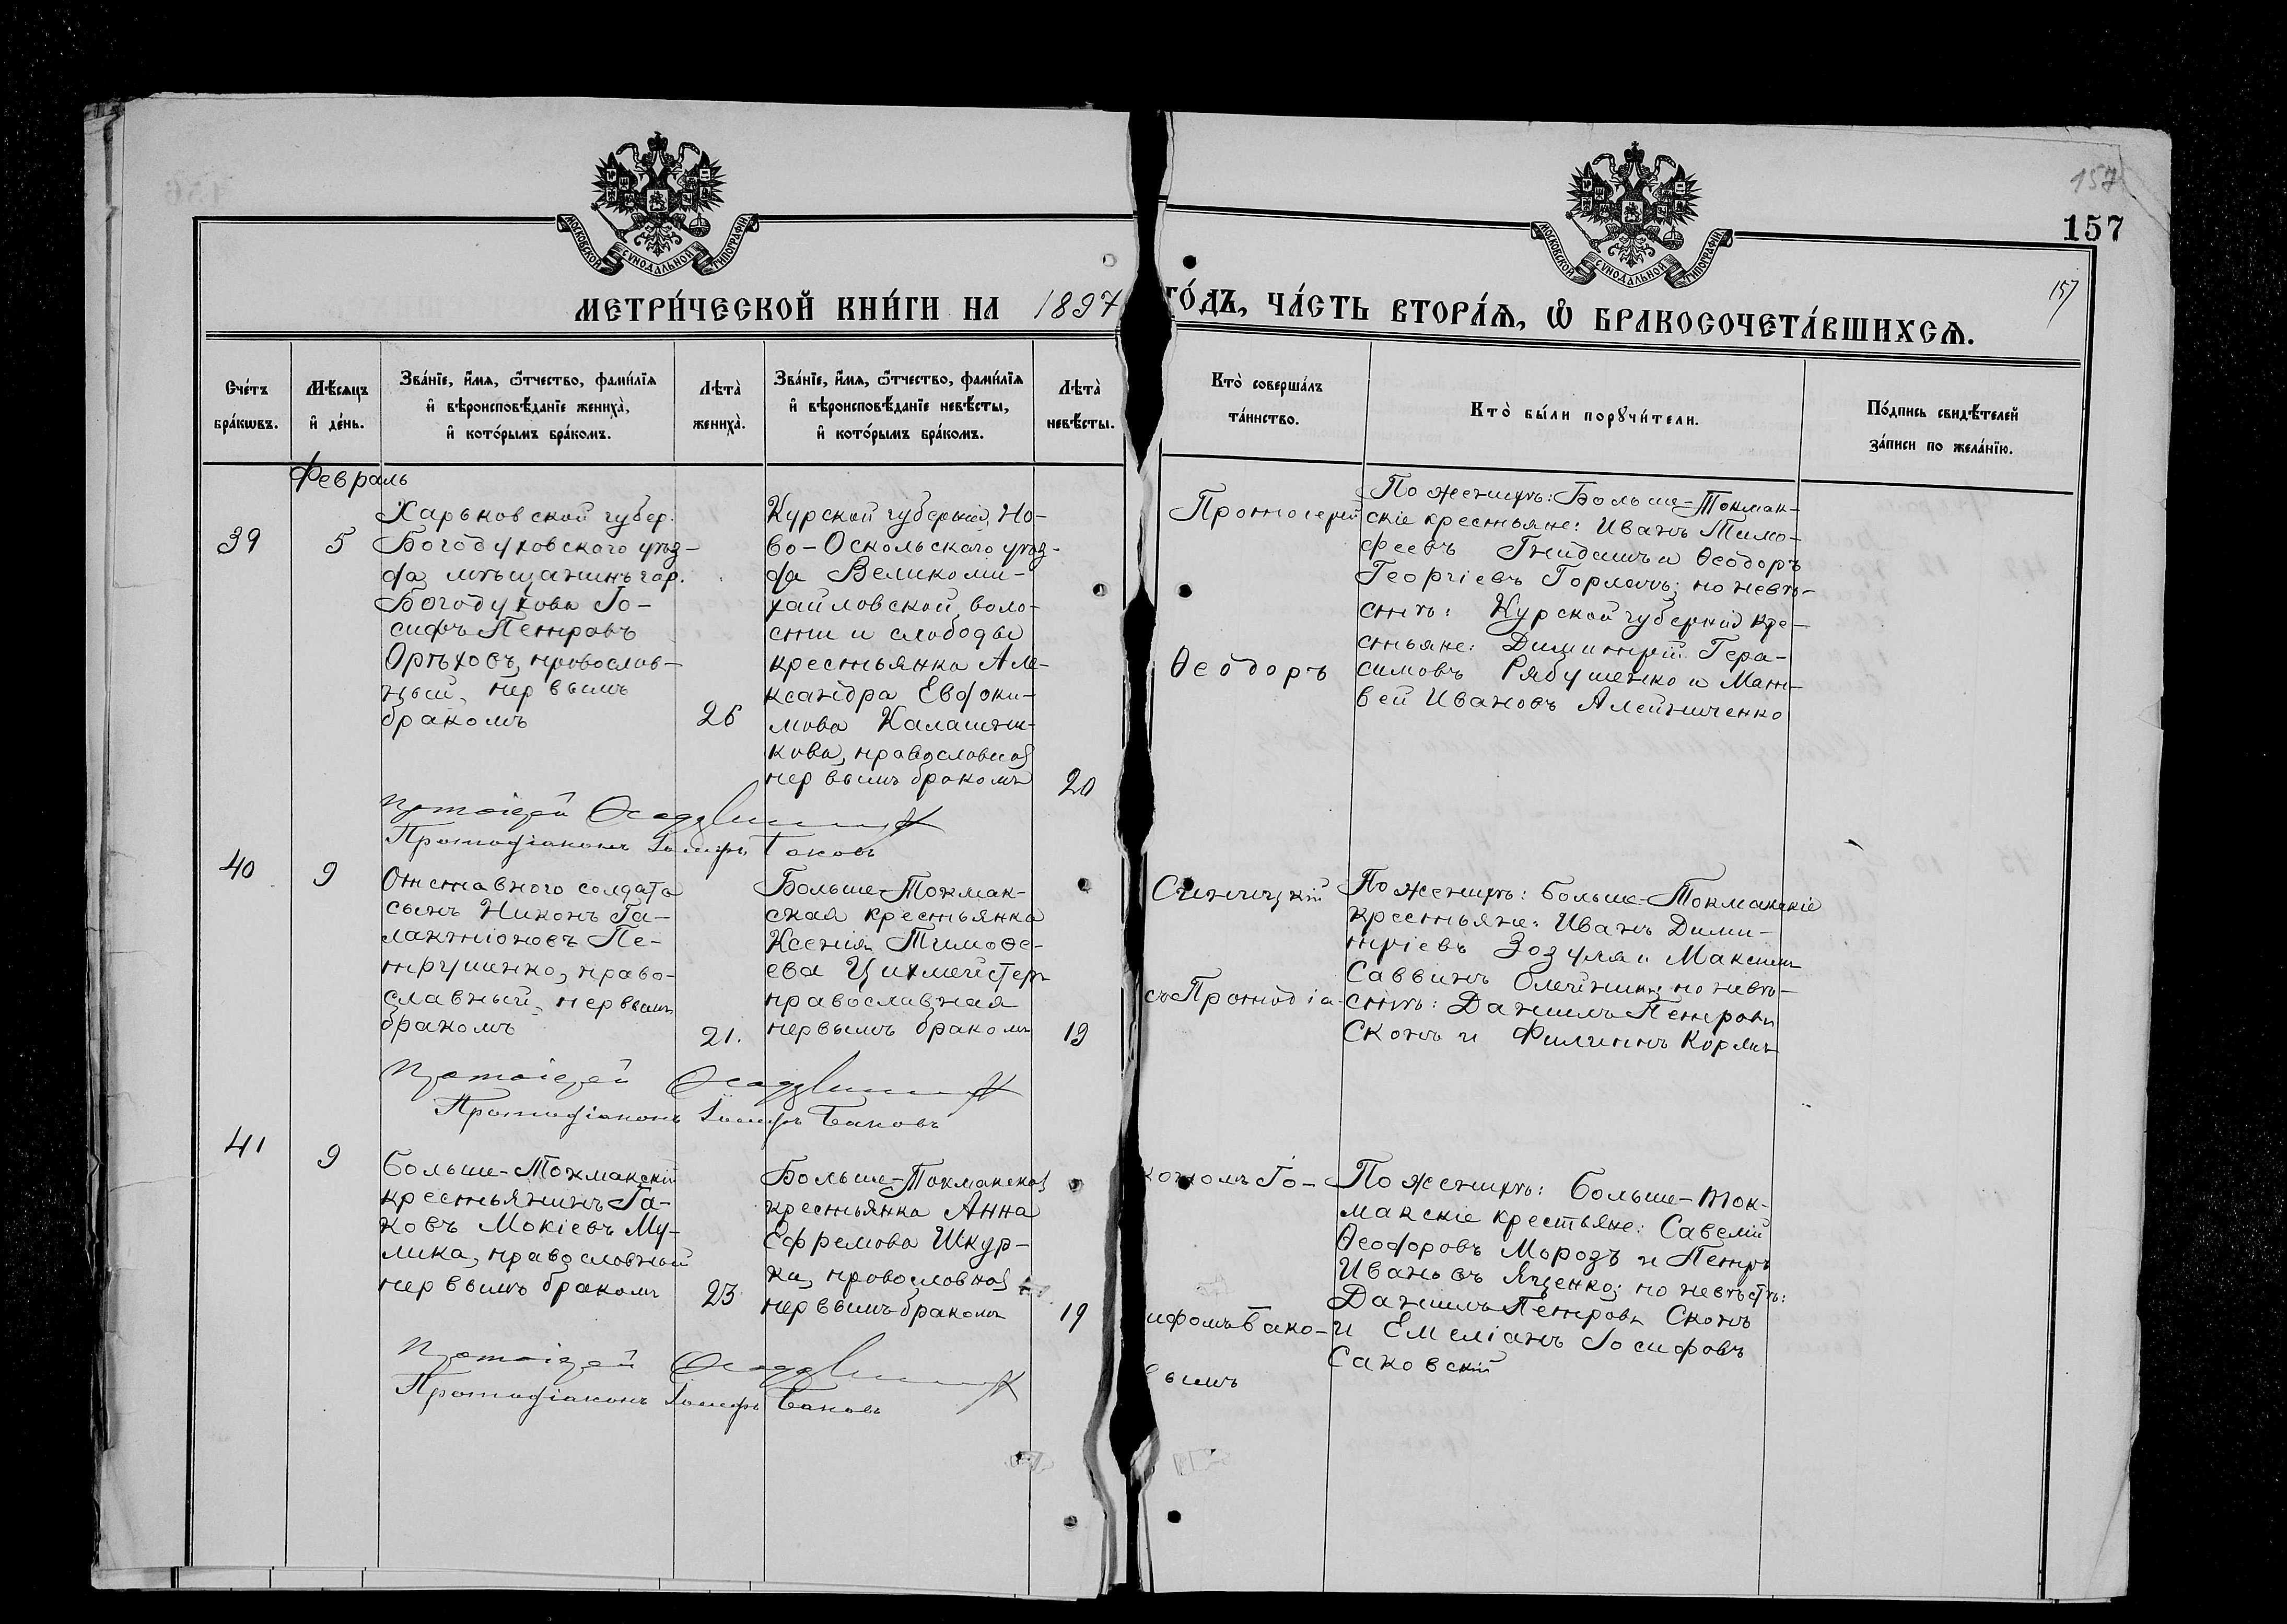 157
157
157
МОСКОВСКОЙ СУНОДАЛЬНОЙ ТИПОГРАФІИ
МОСКОВСКОЙ СУНОДАЛЬНОЙ ТИПОГРАФІИ
МЕТРИ́ЧЕСКОЙ КНИ́ГИ НА 1897 ГО́ДЪ, ЧА́СТЬ ВТОРА́Ѧ, Ѽ БРАКОСОЧЕТА́ВШИХСѦ.
Сче́тъ
бра́кѡвъ.
Мѣ́сѧцъ
и҆ де́нь.
Зва́нїе, и҆́мѧ, ѻ҆́тчество, фами́лїѧ
и҆ вѣроисповѣ́данїе жениха̀,
и҆ кото́рымъ бра́комъ.
Лѣта̀
жениха̀.
Зва́нїе, и҆́мѧ, ѻ҆́тчество, фами́лїѧ
и҆ вѣроисповѣ́данїе невѣ́сты,
и҆ кото́рымъ бра́комъ.
Лѣта̀
невѣ́сты.
Кто̀ соверша́лъ
та́инство.
Кто̀ бы́ли порꙋчи́тели.
По́дпись свидѣ́телей
за́писи по жела́нїю.
Февраль
39
5
Харьковской губер.
Богодуховского уѣз-
да, мѣщанинъ гор.
Богодухова Іо-
сифъ Петровъ
Орѣховъ, православ-
ный, первымъ
бракомъ
26
Курской губерніи, Но-
во-Оскольскаго уѣз-
да Великоми-
хайловской воло-
сти и слободы
крестьянка Але-
ксандра Евдоки-
мова Калашни-
кова, православная
первымъ бракомъ
20
Протоіерей
Ѳеодоръ
По женихѣ: Больше-Токмак-
скіе крестьяне: Иванъ Тимо-
феевъ Гнидашъ и Ѳеодоръ
Георгіевъ Горлачъ; по невѣ-
стѣ: Курской губерніи кре-
стьяне: Димитрій Гера-
симовъ Рябушенко и Мат-
вей Ивановъ Алейниченко
Протоіерей
Протодіаконъ Іосифъ Баковъ
40
9
Отставного солдата
сынъ Никонъ Га-
лактіоновъ Пе-
трушенко, право-
славный, первымъ
бракомъ
21.
Больше-Токмак-
ская крестьянка
Ксенія Тимоѳе-
ева Цихмейстеръ
православная
первымъ бракомъ
19
Синицкій
съ Протодіа-
По женихѣ: Больше-Токмакскіе
крестьяне: Иванъ Дими-
тріевъ Зозуля и Максимъ
Саввинъ Олейникъ; по невѣ-
стѣ: Даніилъ Петровъ
Скокъ и Филиппъ
Протоіерей
Протодіаконъ Іосифъ Баковъ
41
9
Больше-Токмакскій
крестьянинъ Іа-
ковъ Мокіевъ Му-
лика, православный
первымъ бракомъ
23
Больше-Токмакская
крестьянка Анна
Ефремова Шкур-
ка, православная
первымъ бракомъ
19
кономъ Іо-
сифомъ Бако-
вымъ
По женихѣ: Больше-Ток-
макскіе крестьяне: Савелій
Ѳеодоровъ Морозъ и Петръ
Ивановъ Яценко; по невѣстѣ:
Даніилъ Петровъ Скокъ
и Емеліанъ Іосифовъ
Саковскій
Протоіерей
Протодіаконъ Іосифъ Баковъ